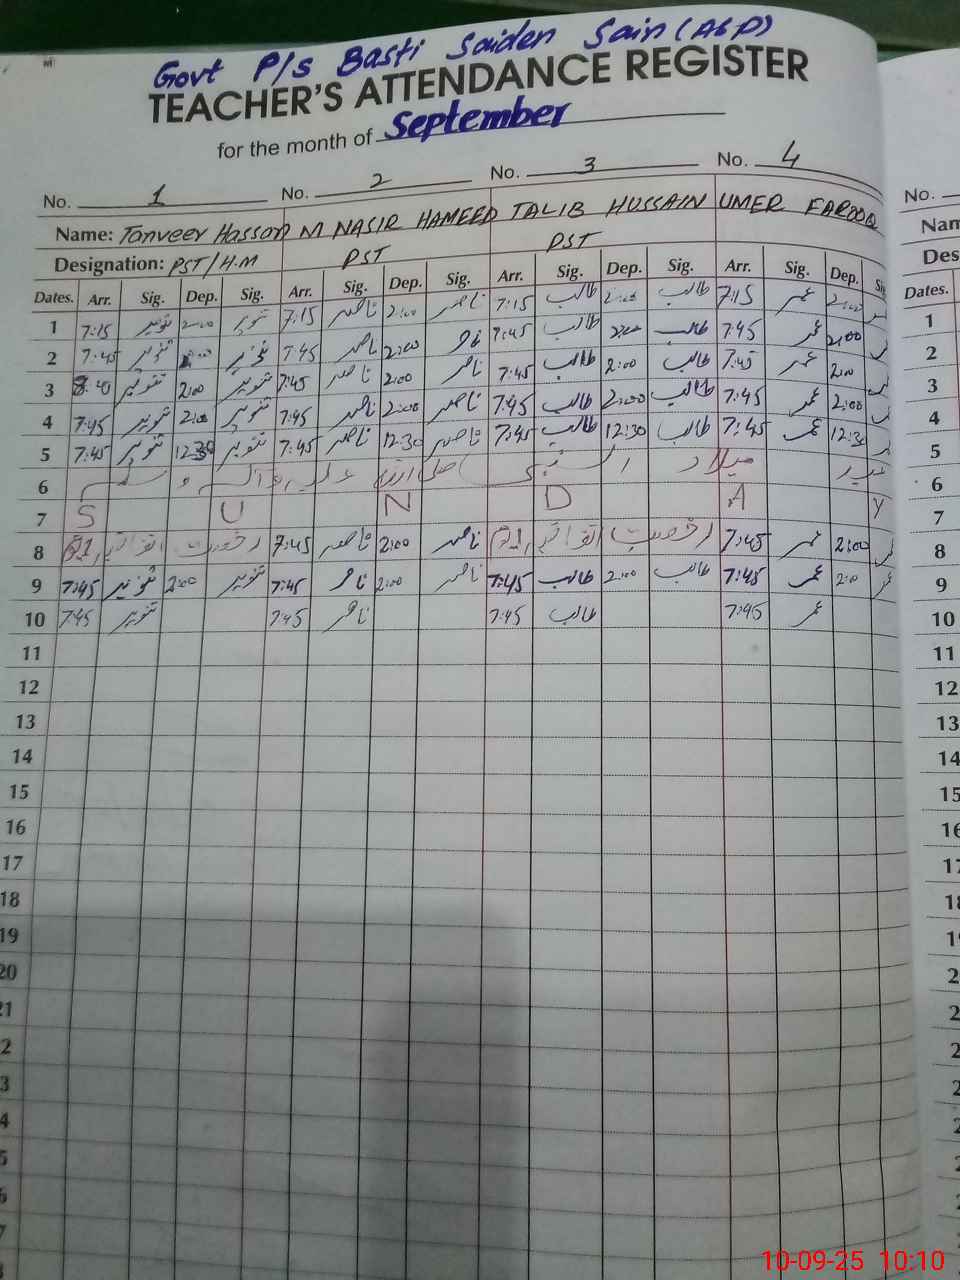 Govt P/s Basti Saiden Sain (AGP)
TEACHER'S ATTENDANCE REGISTER
for the month of September
No. 1 No. 2 No. 3 No. 4 No.
Name: Tanveer Hassan M NASIR HAMEED TALIB HUSSAIN UMER FAROOQ Nam
Designation: PST/H.M PST PST Des
Dates. Arr. Sig. Dep. Sig. Arr. Sig. Dep. Sig. Arr. Sig. Dep. Sig. Arr. Sig. Dep. Si Dates.
1 7:15 تنویر 2:00 تنویر 7:15 ناصر 2:00 ناصر 7:15 طالب 2:00 طالب 7:15 عمر 2:00 1
2 7:45 تنویر 2:00 تنویر 7:45 ناصر 2:00 ناصر 7:45 طالب 2:00 طالب 7:45 عمر 2:00 2
3 7:40 تنویر 2:00 تنویر 7:45 ناصر 2:00 ناصر 7:45 طالب 2:00 طالب 7:45 عمر 2:00 3
4 7:45 تنویر 2:00 تنویر 7:45 ناصر 2:00 ناصر 7:45 طالب 2:00 طالب 7:45 عمر 2:00 4
5 7:45 تنویر 12:30 تنویر 7:45 ناصر 12:30 ناصر 7:45 طالب 12:30 طالب 7:45 عمر 12:30 5
6 عید میلاد النبی صلی اللہ علیہ وآلہ وسلم 6
7 S U N D A Y 7
8 رخصت اتفاقیہ 01 7:45 ناصر 2:00 ناصر رخصت اتفاقیہ 01 7:45 عمر 2:00 8
9 7:45 تنویر 2:00 تنویر 7:45 ناصر 2:00 ناصر 7:45 طالب 2:00 طالب 7:45 عمر 2:0 عمر 9
10 7:45 تنویر 7:45 ناصر 7:45 طالب 7:45 عمر 10
11 11
12 12
13 13
14 14
15 15
16 16
17 17
18 18
19 19
20 2
21 2
2 2
3 2
4 2
5
6
7
10-09-25 10:10